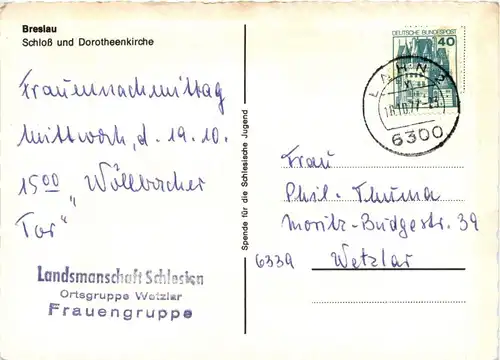 Breslau
Schloß und Dorotheenkirche
Frauennachmittag
Mittwoch, d. 19.10.
15⁰⁰ „Wöllbacher
Tor"
Landsmannschaft Schlesien
Ortsgruppe Wetzlar
Frauengruppe
Spende für die Schlesische Jugend
DEUTSCHE BUNDESPOST
40
LAHN 2
18.10.77
6300
Frau
Phil. Thuma
Moritz-Budgestr. 39
6339 Wetzlar